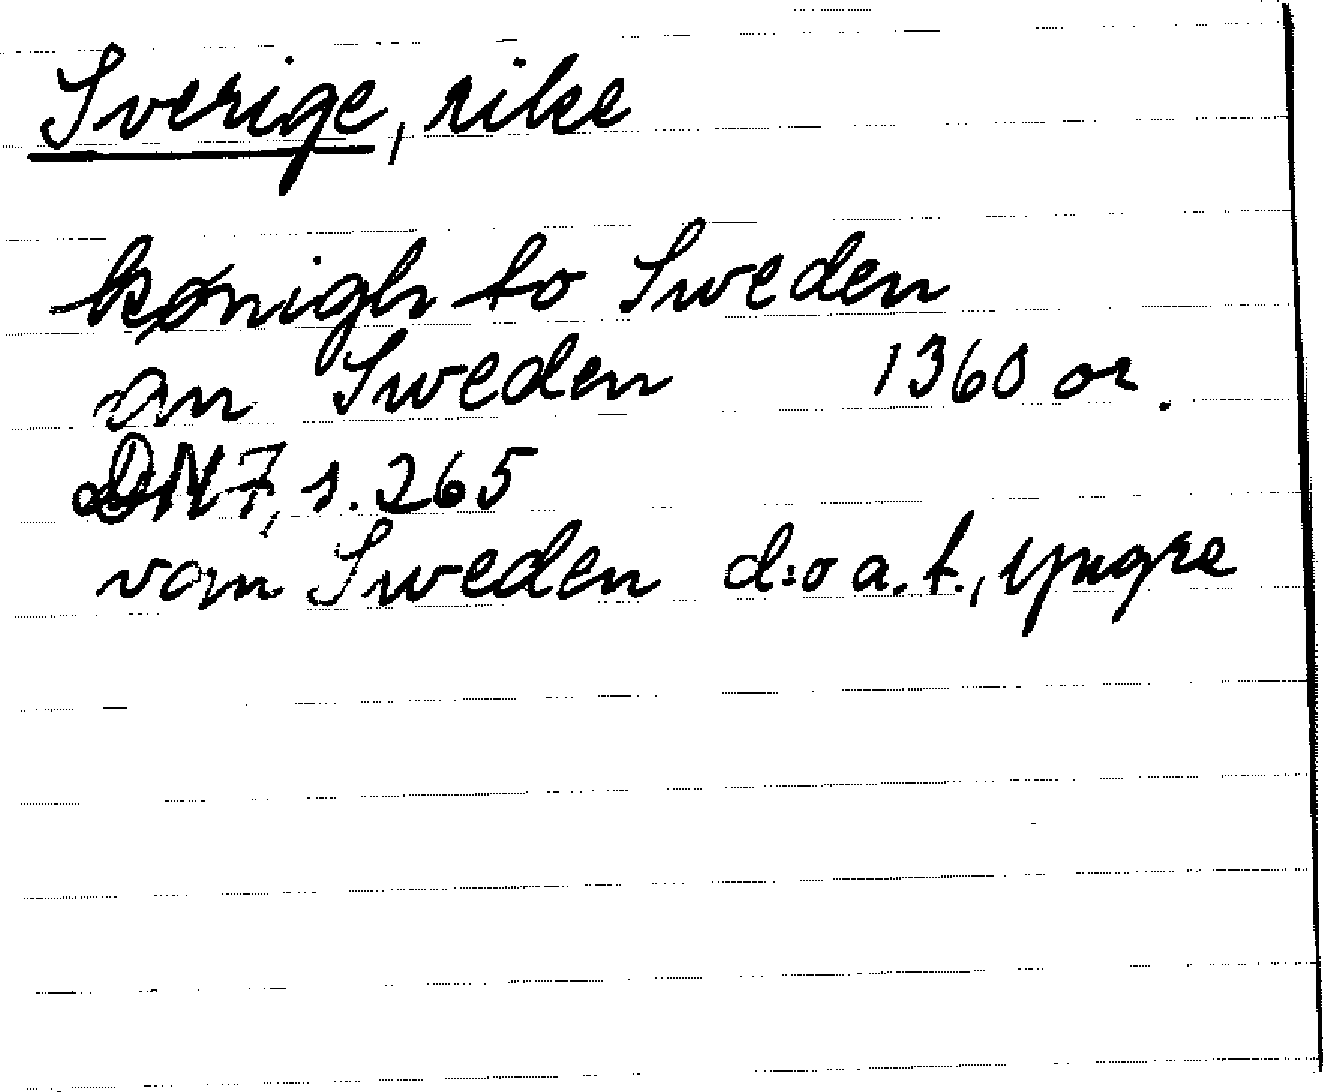 Sverige, rike
kønigh to Sweden
an Sweden 1360 or.
DN 7, s. 265
vam Sweden d:o a.t., yngre